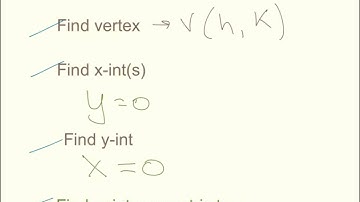 Find vertex → V(h, K)
Find x-int(s)
y=0
Find y-int
x=0